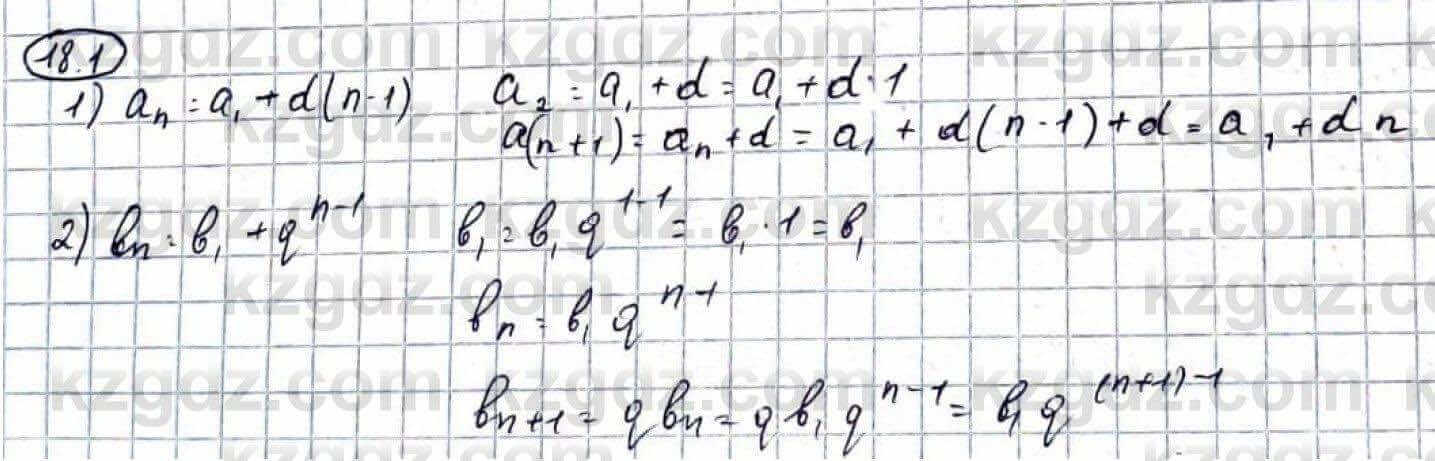 18.1
1) aₙ = a₁ + d(n-1) a₂ = a₁ + d = a₁ + d·1
a(n+1) = aₙ + d = a₁ + d(n-1) + d = a₁ + d n
2) bₙ = b₁ + q^(n-1) b₁ = b₁ q^(1-1) = b₁·1 = b₁
bₙ = b₁ q^(n-1)
bₙ₊₁ = q bₙ = q b₁ q^(n-1) = b₁ q^((n+1)-1)
kzgdz.com kzgdz.com kzgdz.com
kzgdz.com kzgdz.com kzgdz.com
kzgdz.com kzgdz.com kzgdz.com
kzgdz.com kzgdz.com
kzgdz.com kzgdz.com kzgdz.com